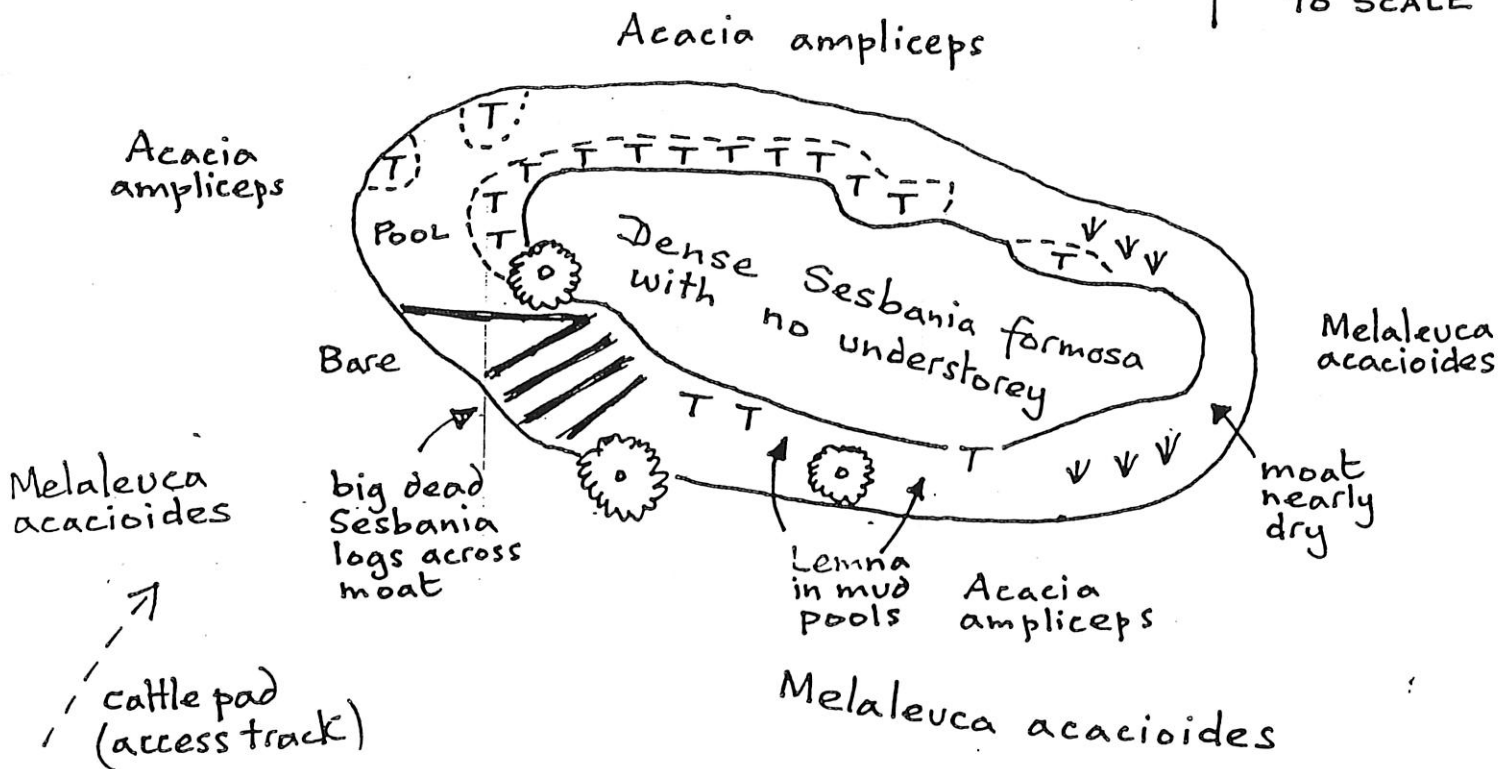 TO SCALE
Acacia ampliceps
Acacia
ampliceps
T
T
T
T
T
T
T
T
T
T
T
T
T
T
POOL
Dense Sesbania formosa
with no understorey
T
Melaleuca
acacioides
Bare
T
T
T
Melaleuca
acacioides
big dead
Sesbania
logs across
moat
moat
nearly
dry
Lemna
in mud
pools
Acacia
ampliceps
cattle pad
(access track)
Melaleuca acacioides